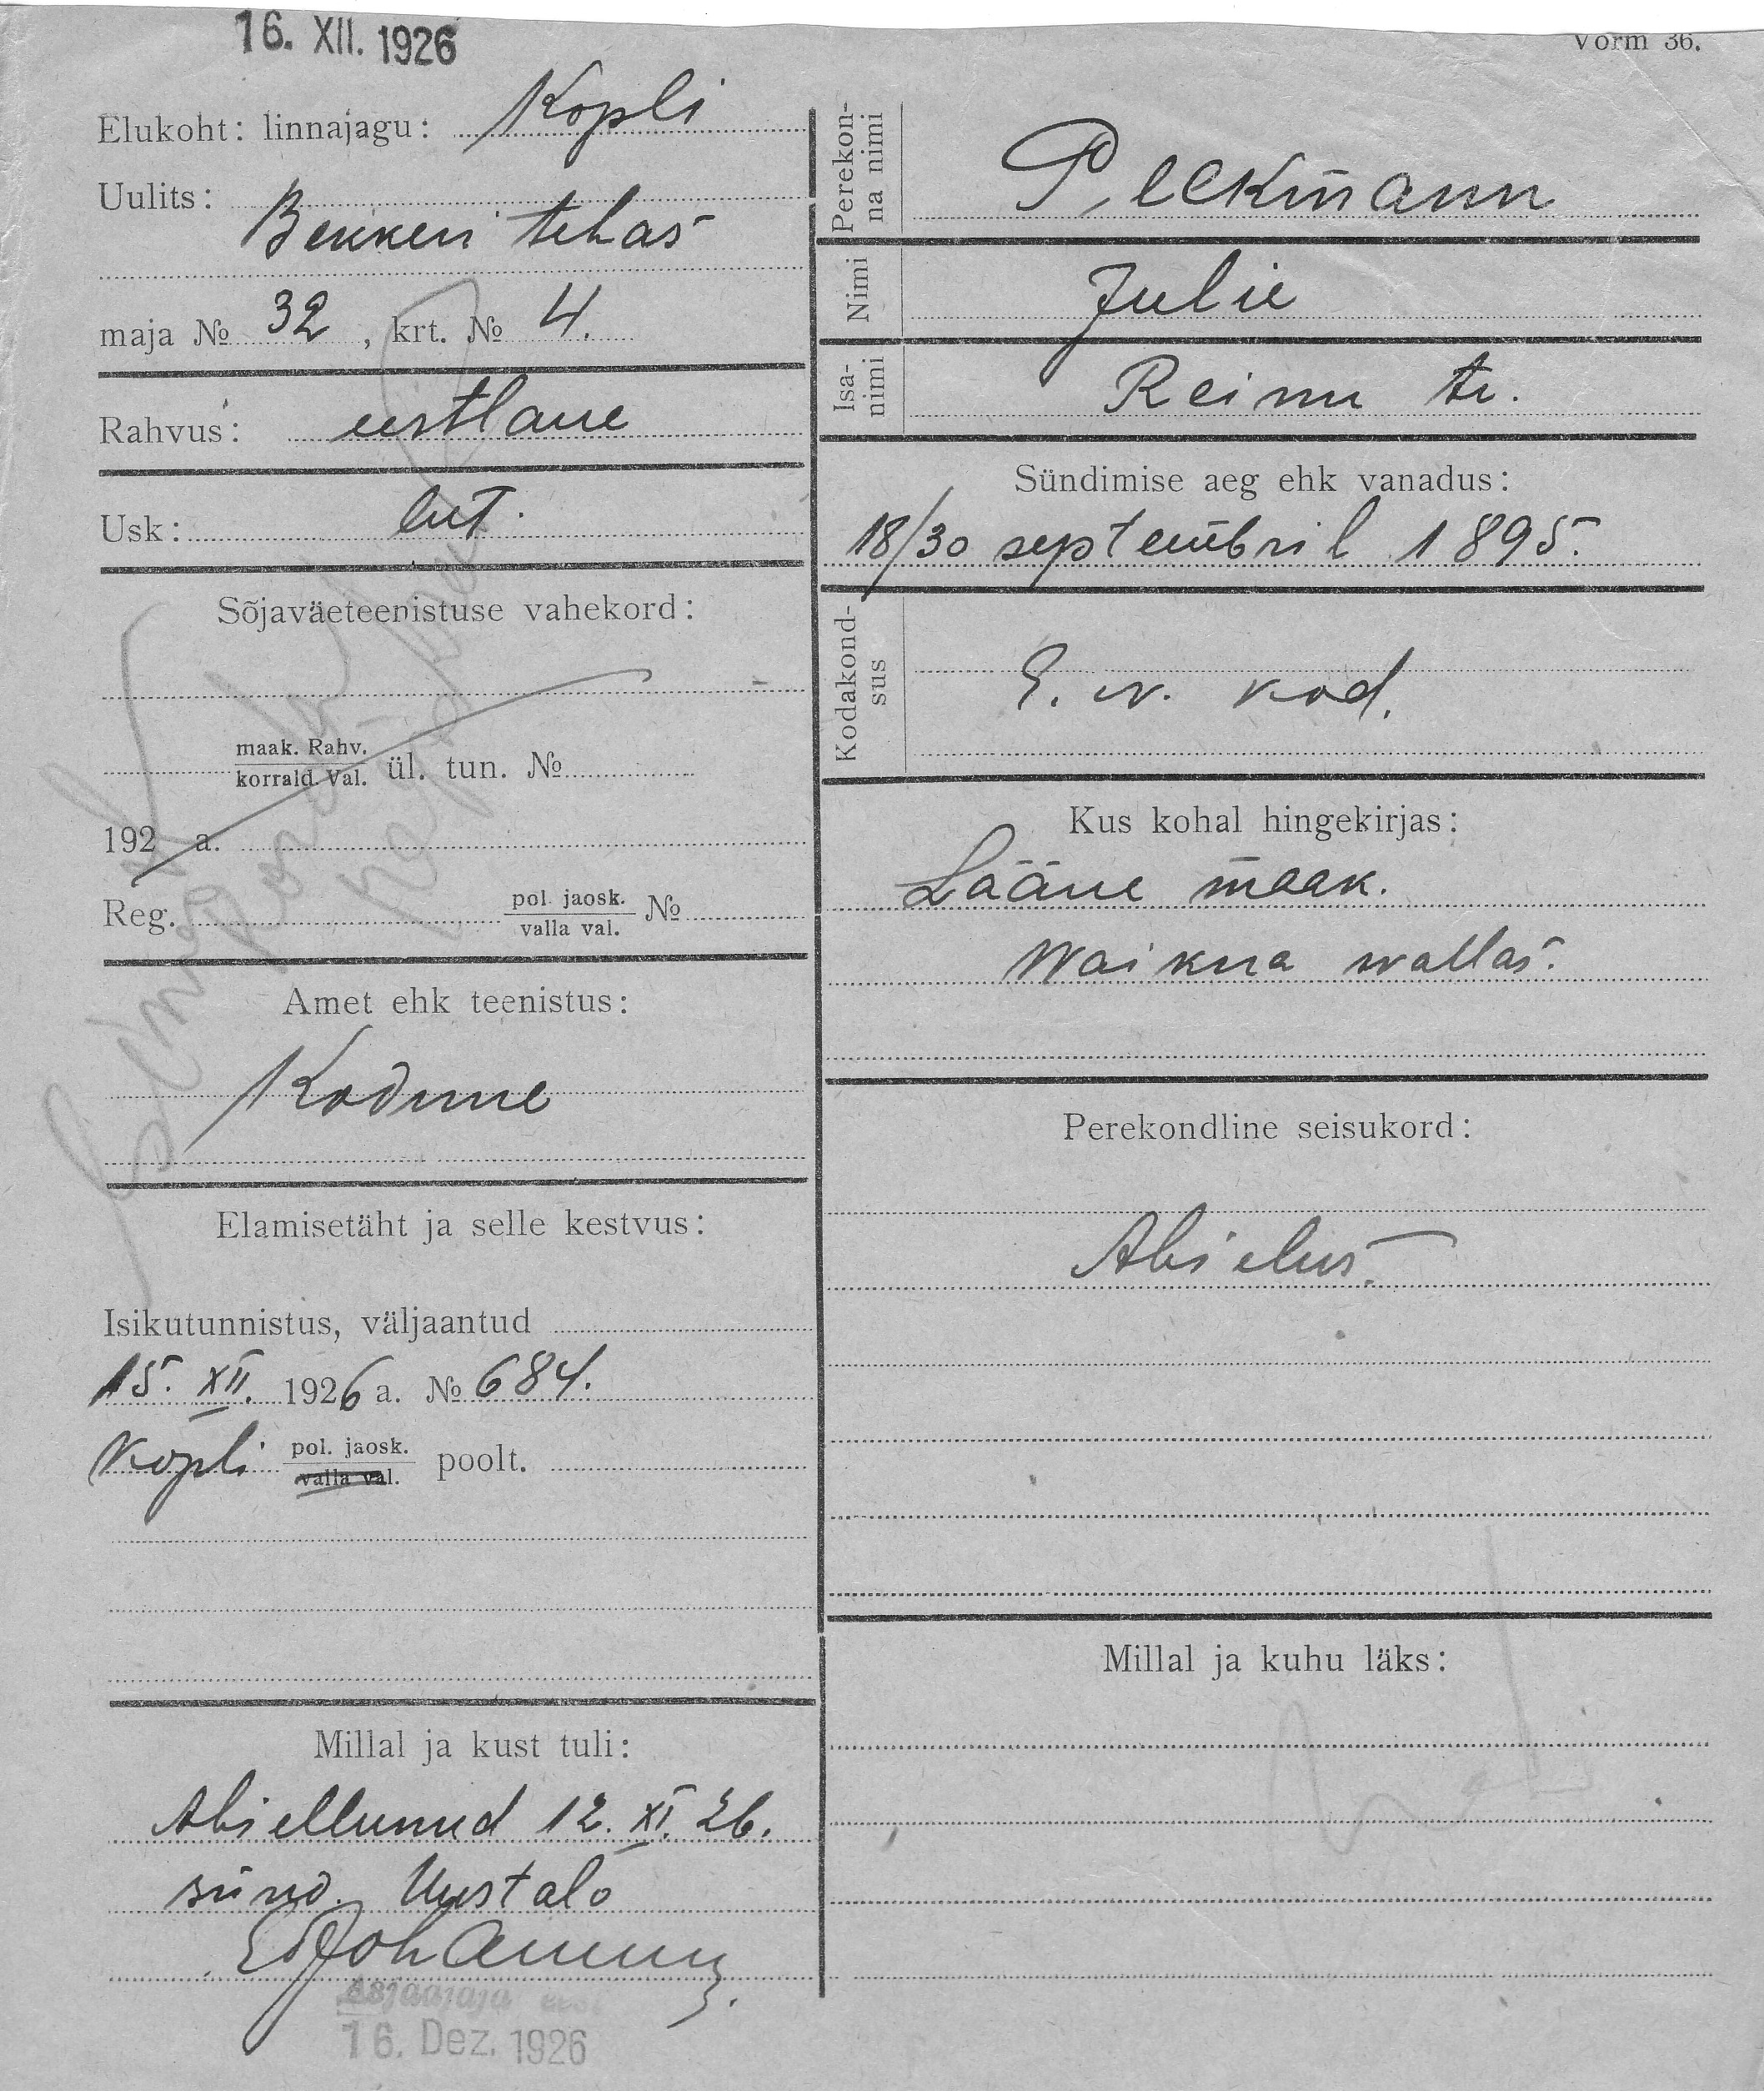 16. XII. 1926
Vorm 36.
Elukoht: linnajagu: Kopli
Uulits:
Bekkeri tehas
maja № 32, krt. № 4.
Rahvus: eestlane
Usk: lut.
Sõjaväeteenistuse vahekord:
maak. Rahv.
korrald. Val. ül. tun. №
192 a.
Reg. pol. jaosk.
valla val. №
Amet ehk teenistus:
Kodune
Elamisetäht ja selle kestvus:
Isikutunnistus, väljaantud
15. XII. 1926 a. № 684.
Kopli pol. jaosk.
valla val. poolt.
Millal ja kust tuli:
Abiellunud 12. XI. 26.
sünd. Uustalo
Asjaajaja
16. Dez. 1926
Perekon-
na nimi
Peekmann
Nimi Julie
Isa-
nimi
Reinu tr.
Sündimise aeg ehk vanadus:
18/30 septembril 1895.
Kodakond-
sus
E. w. kod.
Kus kohal hingekirjas:
Lääne maak.
Waikna wallas.
Perekondline seisukord:
Abielus.
Millal ja kuhu läks: